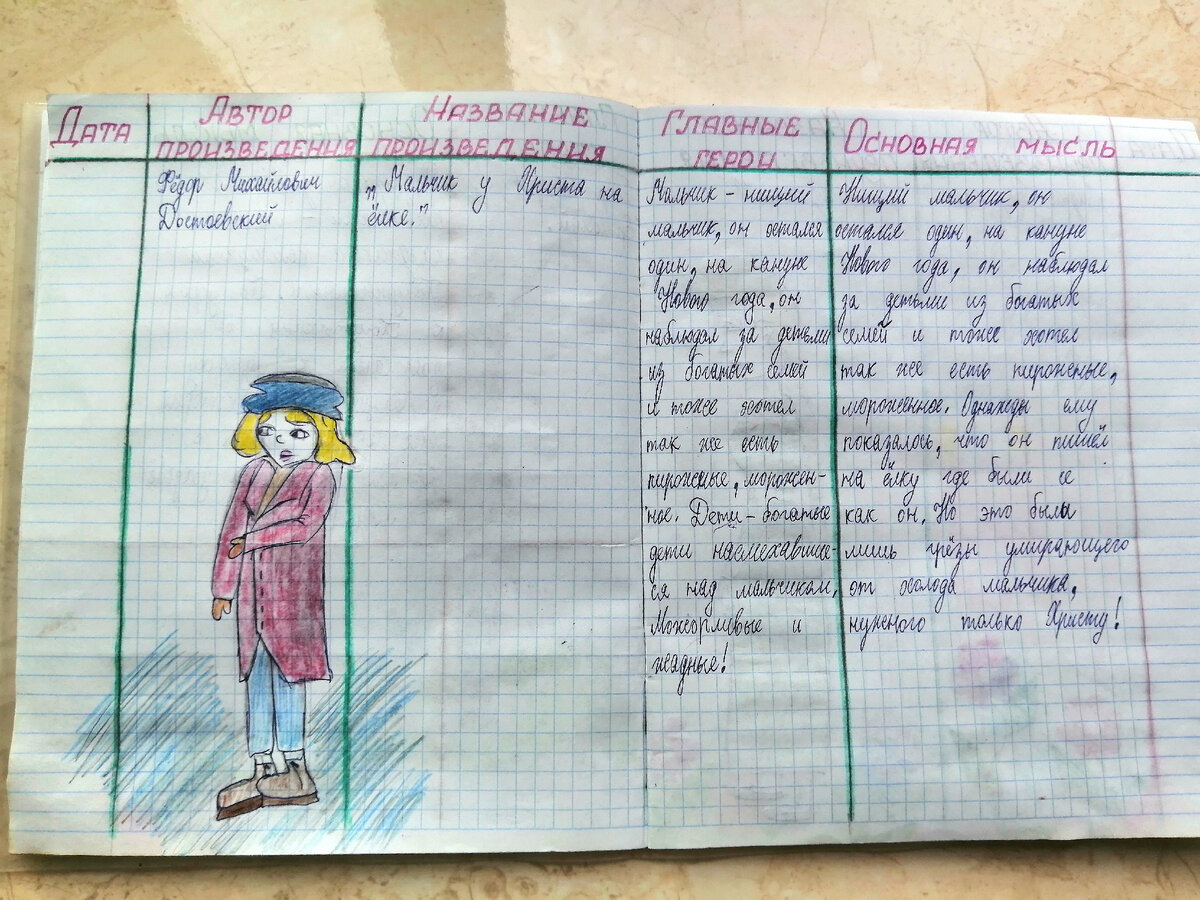 Дата
Автор
произведения
Название
произведения
Главные
герои
Основная мысль
Фёдор Михайлович
Достоевский
„Мальчик у Христа на
ёлке."
Мальчик – нищий
мальчик, он остался
один, на кануне
Нового года, он
наблюдал за детьми
из богатых семей
и тоже хотел
так же есть
пироженые, морожен-
ное. Дети – богатые
дети насмехавшие-
ся над мальчиком,
и
жадные!
Нищий мальчик, он
остался один, на кануне
Нового года, он наблюдал
за детьми из богатых
семей и тоже хотел
так же есть пироженые,
мороженное. Однажды ему
показалось, что он
на ёлку где были
как он. Но это были
лишь грёзы умирающего
от холода мальчика,
нужного только Христу!